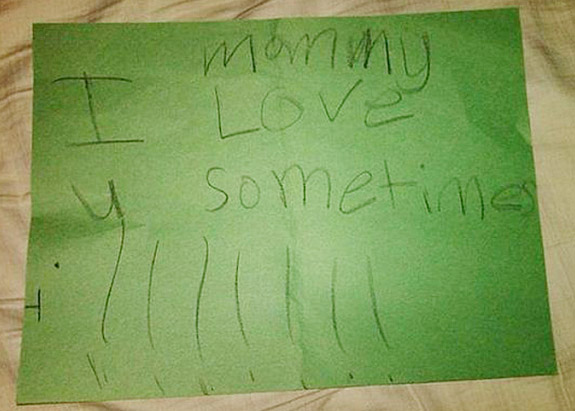 mommy
I Love
u sometimes
!!!!!!!